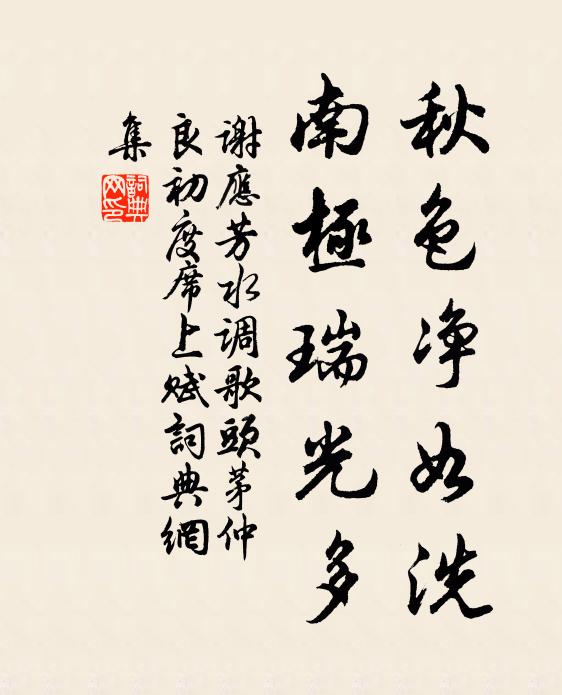 秋色净如洗
南極瑞光多
謝應芳水调歌頭茅仲
良初度席上赋詞典網
集
詞典網印